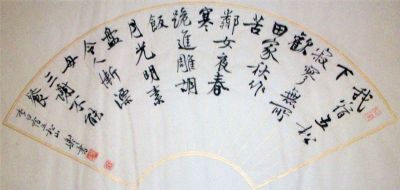 我宿五松
下
寂寥無所
歡
田家秋作
苦
鄰女夜舂
寒
跪進雕胡
飯
月光明素
盤
令人慚漂
母
三謝不能
餐